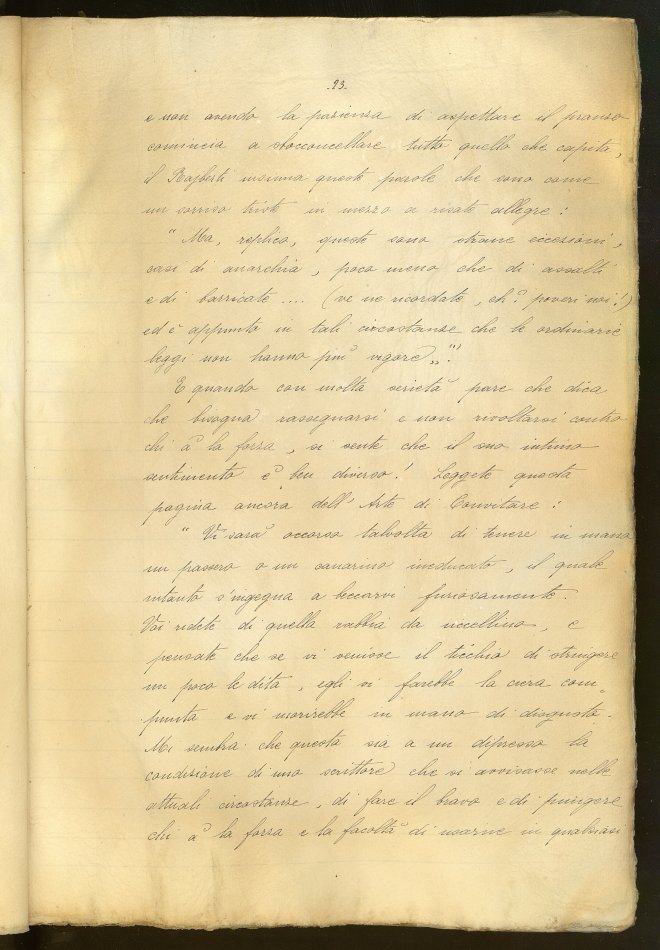 .93.
e non avendo la pazienza di aspettare il pranzo
comincia a sbocconcellare tutto quello che capita,
il Rajberti insinua queste parole che sono come
un sorriso triste in mezzo a risate allegre:
" Ma, replico, queste sono strane eccezioni,
casi di anarchia, poco meno che di assalti
e di barricate .... (ve ne ricordate, eh? poveri noi!)
ed è appunto in tali circostanze che le ordinarie
leggi non hanno più vigore „ .
E quando con molta serietà pare che dica
che bisogna rassegnarsi e non rivoltarsi contro
chi à la forza, si sente che il suo intimo
sentimento è ben diverso! Leggete questa
pagina ancora dell'Arte di Convitare:
" Vi sarà occorso talvolta di tenere in mano
un passero o un canarino ineducato, il quale
intanto s'ingegna a beccarvi furiosamente.
Voi ridete di quella rabbia da uccellino, e
pensate che se vi venisse il ticchio di stringere
un poco le dita, egli vi farebbe la cera com-
punta e vi morirebbe in mano di disgusto.
Mi sembra che questa sia a un dipresso la
condizione di uno scrittore che si avvisasse nelle
attuali circostanze, di fare il bravo e di pungere
chi à la forza e la facoltà di usarne in qualsiasi